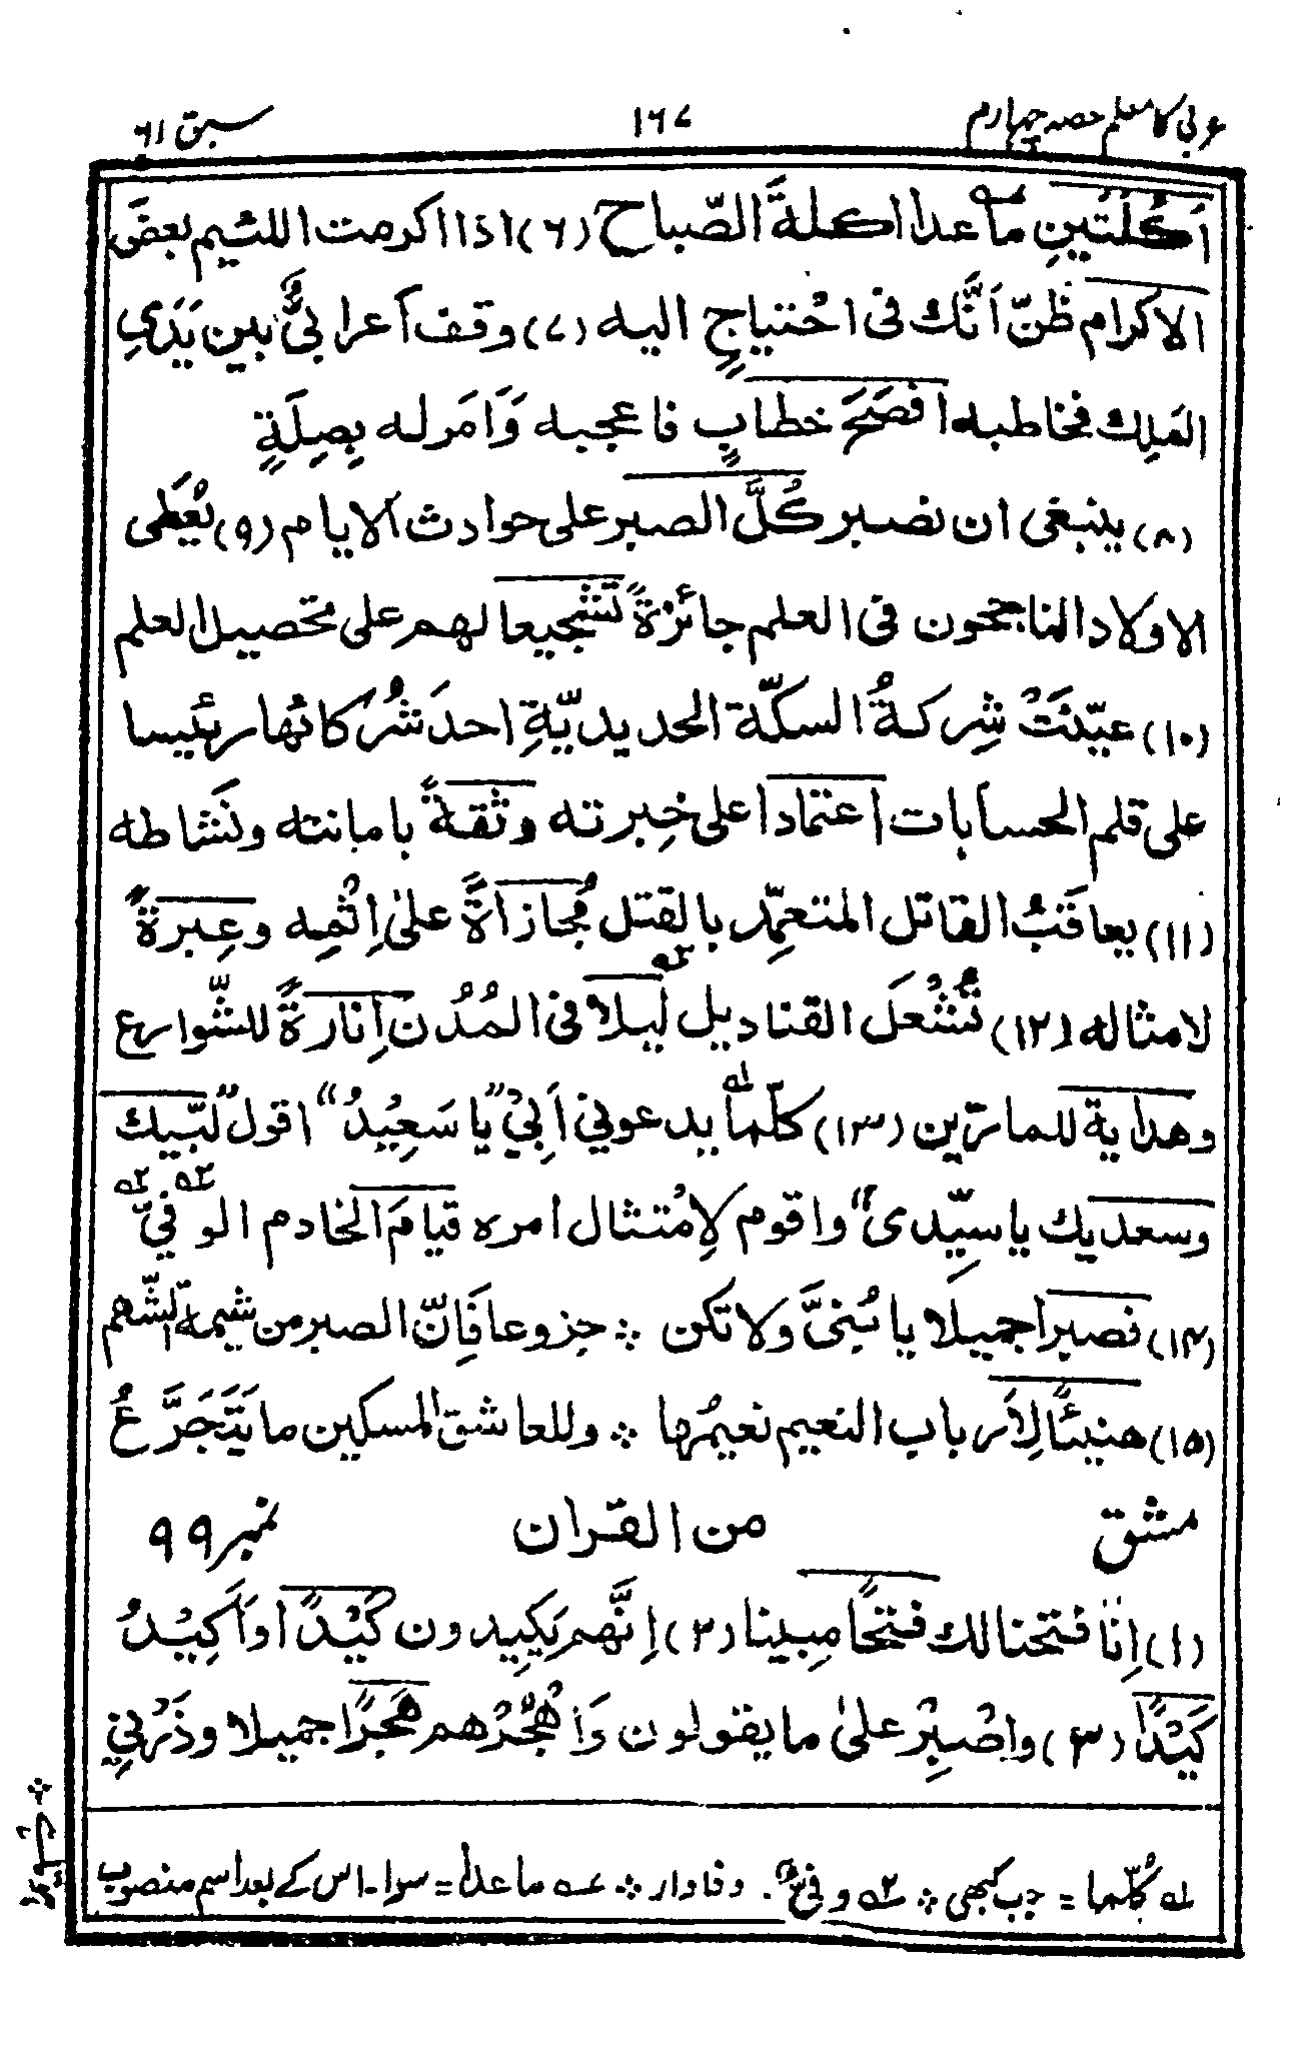 عربی کا معلم حصہ چہارم ۱۶۷ سبق ۶۱
اَكْلَتَيْنِ ما عدا اكلةَ الصّباح (۶) اذا اكرمت اللئيم بعضَ
الاكرام ظنّ اَنَّك فى احْتياجٍ اليه (۷) وقف اَعرابىٌّ بين يَدَىِ
المَلِك فخاطبه افصَحَ خطابٍ فاعجبه وَاَمَر له بِصِلَةٍ
(۸) ينبغى ان نصبر كُلَّ الصبر على حوادث الايام (۹) يُعْطَى
الاولاد الناجحون فى العلم جائزةً تشجيعا لهم على تحصيل العلم
(۱۰) عيّنَتْ شِركةُ السكّة الحديديّةِ احدَ شُركائها رئيسا
على قلم الحسابات اعتمادا على خِبرته وثقةً بامانته ونَشاطه
(۱۱) يعاقَبُ القاتل المتعمِّد بالقتل مُجازاةً علىٰ اِثْمِه وعِبرةً
لامثاله (۱۲) تُشْعَل القناديل ليلا ؎۲ فى المُدُن اِنارةً للشّوارع
وهداية للمارّين (۱۳) كلّما ؎۱ يدعوني اَبِيْ "يا سَعِيْدُ" اقول "لبّيك
وسعديك يا سيّدى" واقوم لِامْتثال امره قيامَ الخادم الوفيّ ؎۲ ؎۳
(۱۴) فصبراً جميلا يا بُنىَّ ولا تكن ؞ جزوعا فَاِنّ الصبر من شيمة الشّهم
(۱۵) هنيئًا لِاَرباب النعيم نعيمُها ؞ وللعاشق المسكين ما يَتَجَرَّعُ
مشق من القران نمبر ۹۹
(۱) اِنّا فتحنا لك فتحًا مبينا (۲) اِنَّهم يَكِيدون كَيْدًا وَاَكِيْدُ
كَيْدًا (۳) واصْبِرْ علىٰ ما يقولون وَاهْجُرْهم هَجرًا جميلا وذَرْنِي
؎۱ كُلّما = جب کبھی ؞ ؎۲ وفيّ. وفادار ؞ ؎ ما عدا = سوا۔ اس کے بعد اسم منصوب